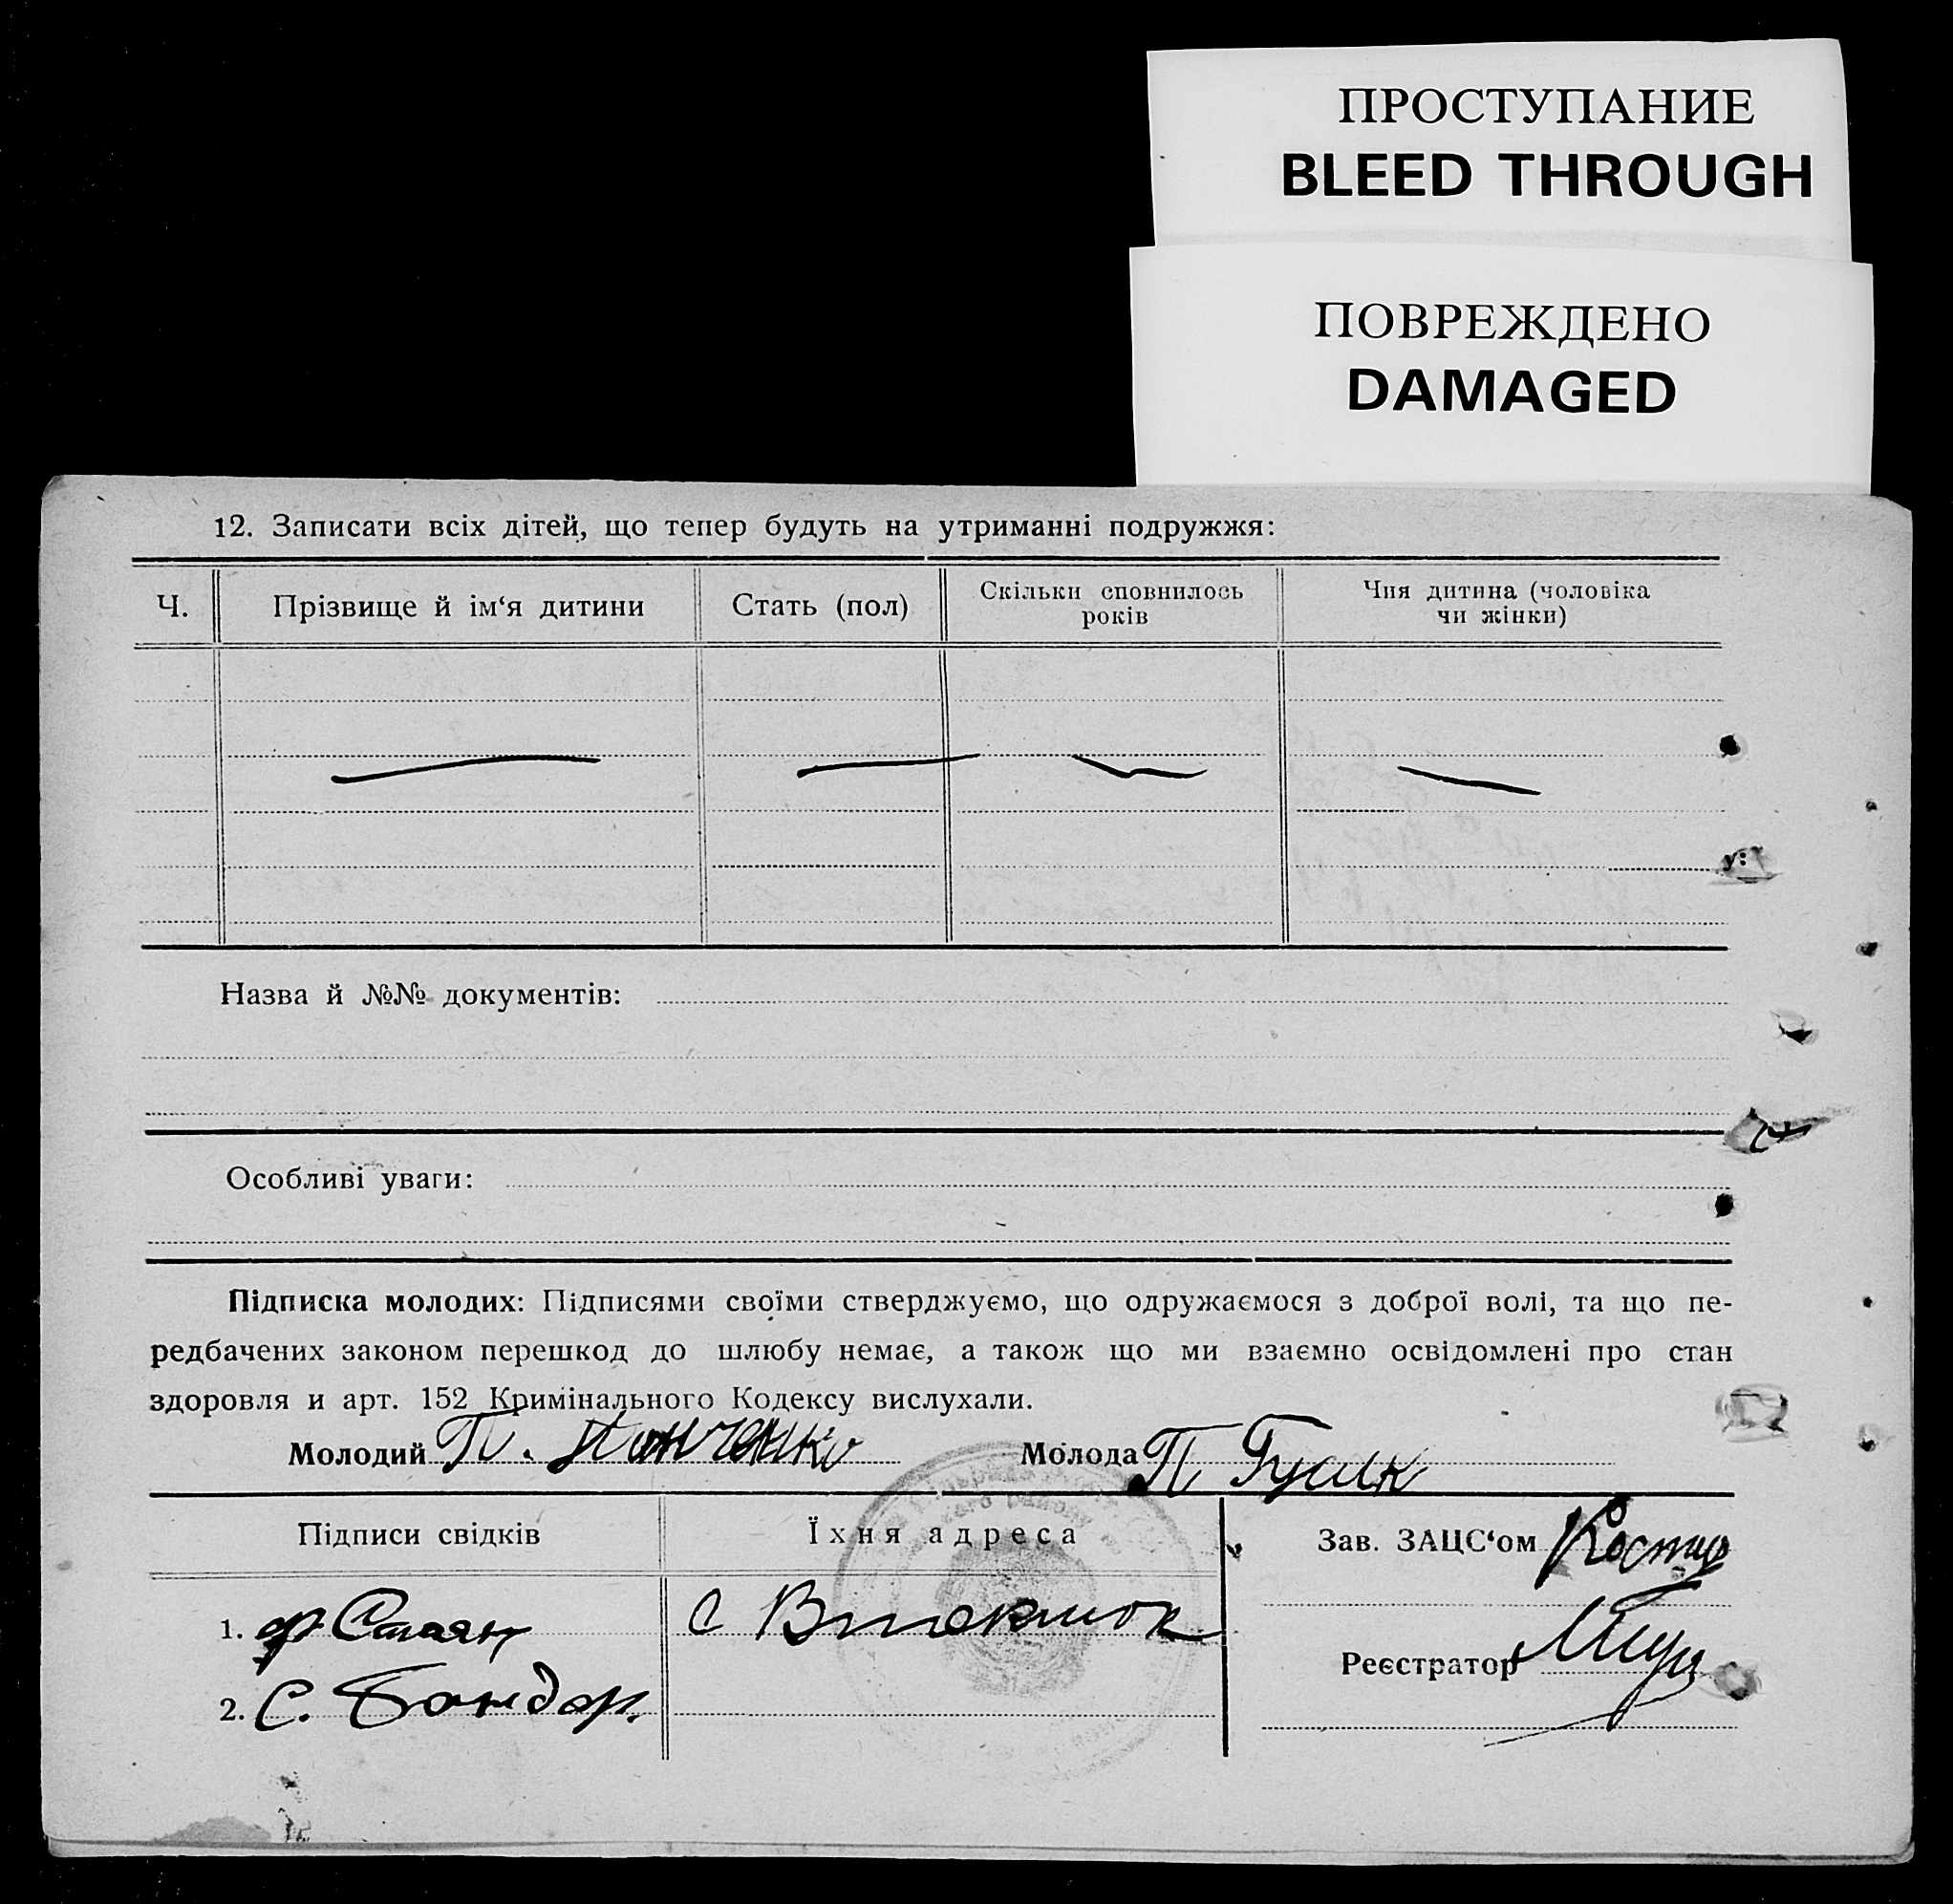 ПРОСТУПАНИЕ
BLEED THROUGH
ПОВРЕЖДЕНО
DAMAGED
12. Записати всіх дітей, що тепер будуть на утриманні подружжя:
Ч. Прізвище й ім‘я дитини Стать (пол) Скільки сповнилось років Чия дитина (чоловіка чи жінки)
Назва й №№ документів:
Особливі уваги:
Підписка молодих: Підписями своїми стверджуємо, що одружаємося з доброї волі, та що пе-
редбачених законом перешкод до шлюбу немає, а також що ми взаємно освідомлені про стан
здоровля и арт. 152 Кримінального Кодексу вислухали.
Молодий П. Панченко Молода П Гусик
Підписи свідків Їхня адреса Зав. ЗАЦС‘ом
1. с
Реєстратор
2. С. Бондар.